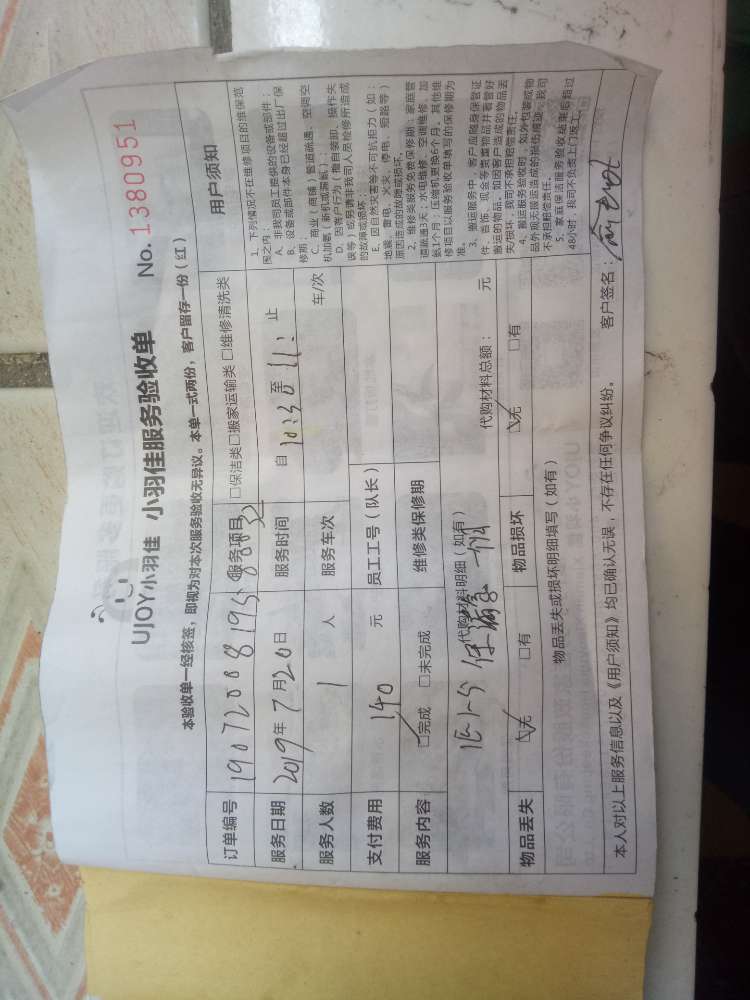 UJOY小羽佳 小羽佳服务验收单 No. 1380951
本验收单一经核签，即视为对本次服务验收无异议。本单一式两份，客户留存一份（红）
订单编号 服务项目 □保洁类□搬家运输类 □维修清洗类
服务日期 2019年7月20日 服务时间 自 10:30 至 11: 止
服务人数 1 人 服务车次 车/次
支付费用 140 元 员工工号（队长）
服务内容 ☑完成 □未完成 维修类保修期
代购材料明细（如有） 代购材料总额： 元
物品丢失 ☑无 □有 物品损坏 ☑无 □有
物品丢失或损坏明细填写（如有）
用户须知
1、下列情况不在维修项目的维保范
围之内：
A、非我司员工提供的设备或部件；
B、设备或部件本身已经超过出厂保
修期；
C、商业（商铺）管道疏通、空调空
机加氨（新机或漏氨）；
D、因客户行为（擅自装卸、操作失
误等）或另请非我司人员检修所造成
的故障或损坏。
E、因自然灾害等不可抗拒力（如：
地震、雷电、火灾、停电、短路等）
原因造成的故障或损坏。
2、维修类服务免费保修期：家庭管
道疏通3天；水电维修、空调维修、加
氨1个月；压缩机更换6个月。其他维
修项目以服务验收单填写的保修期为
准。
3、搬运服务中，客户应随身保管证
件、首饰、现金等贵重物品并看管好
搬运的物品。如因客户造成的物品丢
失/损坏，我司不承担赔偿责任。
4、搬运服务验收时，如外包装或物
品外观无搬运造成的损伤痕迹，我司
不承担赔偿责任。
5、家庭保洁服务验收结束后超过
48小时，我司不负责上门返工。
本人对以上服务信息以及《用户须知》均已确认无误，不存在任何争议纠纷。 客户签名：